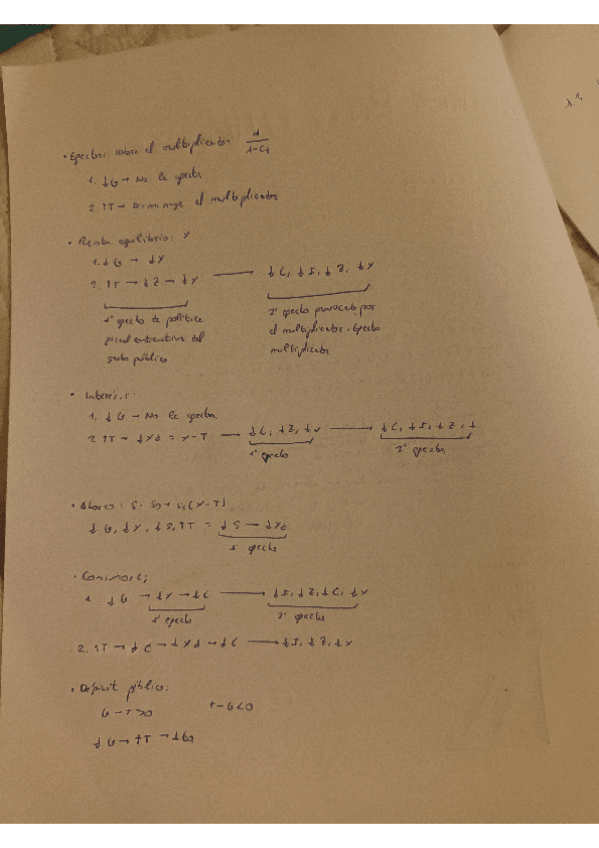 • Efectos sobre el multiplicador 1/1-C1
1. ↓G → No le afecta
2. ↑T → Disminuye el multiplicador
• Renta equilibrio: Y
1. ↓G → ↓Y
2. ↑T → ↓Z → ↓Y → ↓C, ↓I, ↓Z, ↓Y
1º efecto de política fiscal contractiva del gasto público
2º efecto provocado por el multiplicador. Efecto multiplicador
• Interés, :
1. ↓G → No le afecta
2. ↑T → ↓Yd = Y-T → ↓C, ↓Z, ↓Y → ↓C, ↓I, ↓Z, ↓
1º efecto 2º efecto
• Ahorro: S = S0 + S1(Y-T)
↓G, ↓Y, ↓S, ↑T = ↓S → ↓Yd
1º efecto
• Consumo C;
1. ↓G → ↓Y → ↓C → ↓I, ↓Z, ↓C, ↓Y
1º efecto 2º efecto
2. ↑T → ↓C → ↓Yd → ↓C → ↓I, ↓Z, ↓Y
• Déficit público:
G-T>0 T-G<0
↓G → ↑T →
1.3